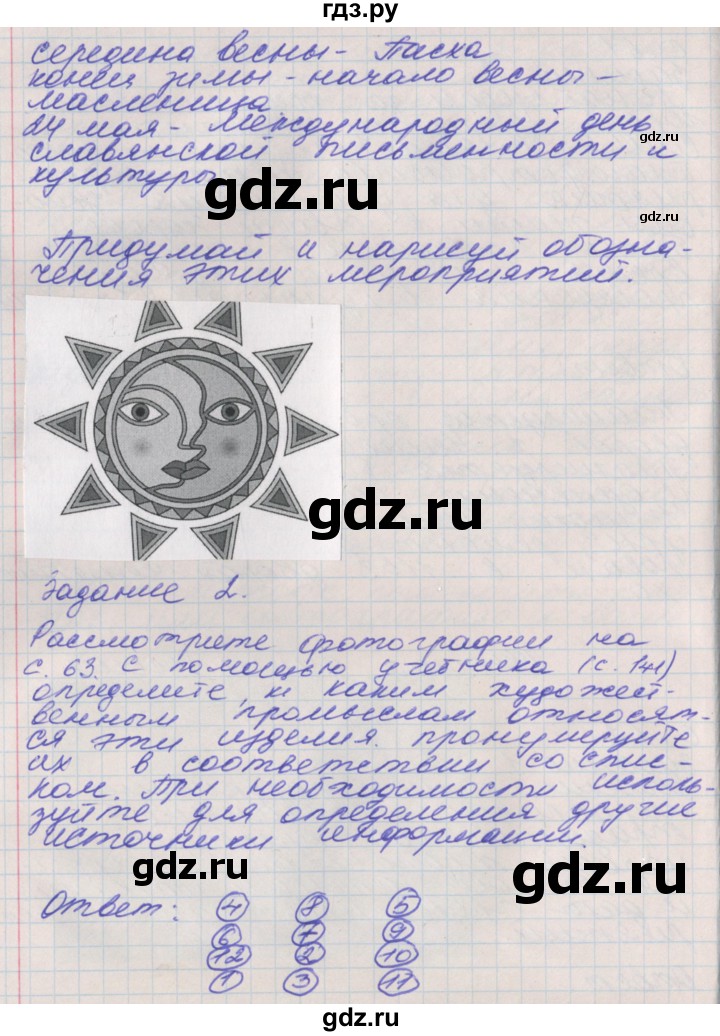 гдз.ру
середина весны - Пасха
конец зимы - начало весны -
масленица
24 мая - Международный день
славянской письменности и
культуры
gdz.ru
gdz.ru
gdz.ru
Придумай и нарисуй обозна-
чения этих мероприятий.
gdz.ru
Задание 2.
Рассмотрите фотографии на
с. 63. С помощью учебника (с. 141)
определите, к каким художест-
венным промыслам относят-
ся эти изделия. пронумеруйте
их в соответствии со спис-
ком. При необходимости исполь-
зуйте для определения другие
источники информации.
gdz.ru
gdz.ru
Ответ: 4 8 5
6 7 9
12 2 10
1 3 11
gdz.ru